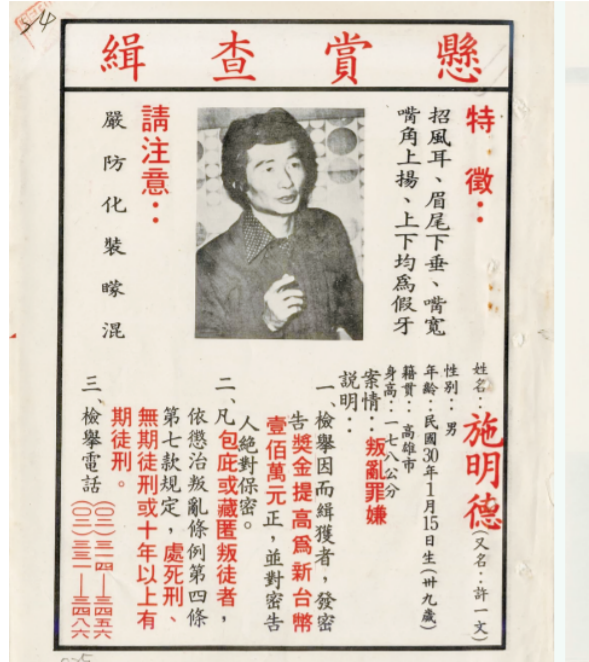 54
懸賞查緝
特徵：
招風耳、眉尾下垂、嘴寬
嘴角上揚、上下均爲假牙
請注意：
嚴防化裝矇混
姓名：施明德(又名：許一文)
性別：男
年齡：民國30年1月15日生(卅九歲)
籍貫：高雄市
身高：一七八公分
案情：叛亂罪嫌
說明：
一、檢舉因而緝獲者，發密
告獎金提高爲新台幣
壹佰萬元正，並對密告
人絕對保密。
二、凡包庇或藏匿叛徒者，
依懲治叛亂條例第四條
第七款規定，處死刑、
無期徒刑或十年以上有
期徒刑。
三 檢舉電話
(〇二)三一四—三四五六
(〇二)三三一—三四八六